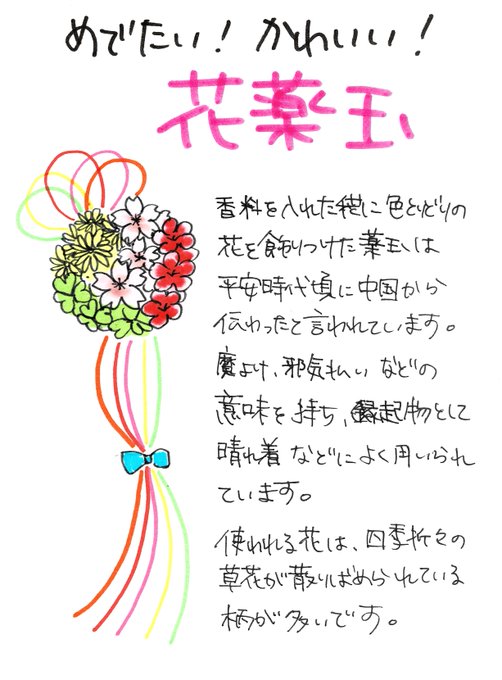 めでたい！かわいい！
花薬玉
香料を入れた袋に色とりどりの
花を飾りつけた薬玉は
平安時代頃に中国から
伝わったと言われています。
魔よけ、邪気払いなどの
意味を持ち、縁起物として
晴れ着などによく用いられ
ています。
使われる花は、四季折々の
草花が散りばめられている
柄が多いです。